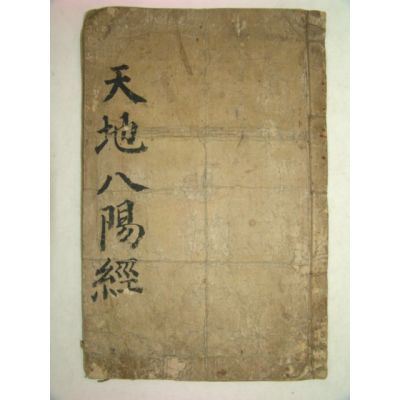 天地八陽經